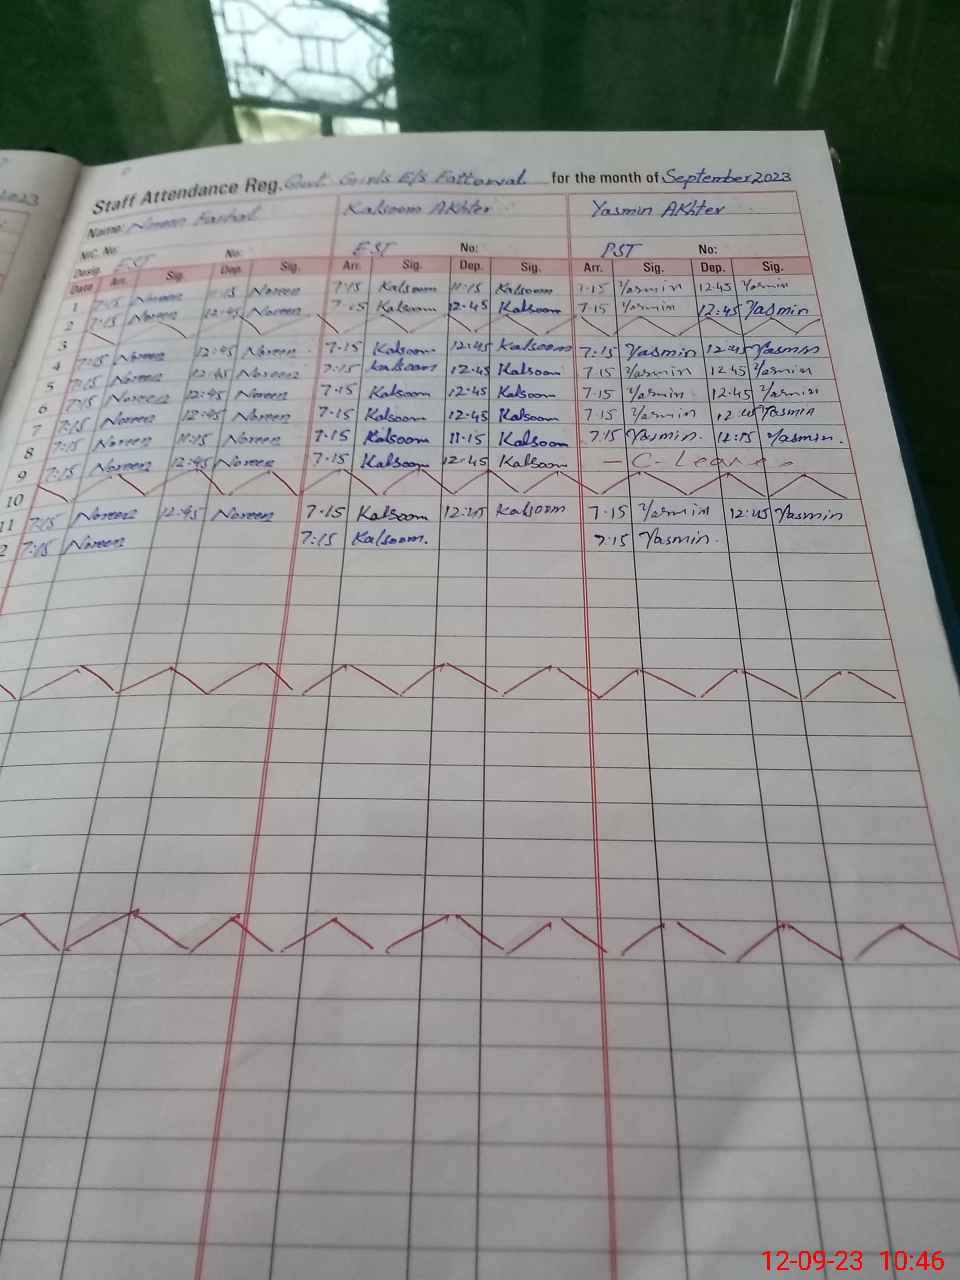 2023
Staff Attendance Reg. Govt Girls E/s Fattorwal for the month of September 2023
Name: Noreen Kalsoom Akhter Yasmin Akhter
N.I.C. No.
Desig. EST No: EST No: PST No:
Date Arr. Sig. Dep. Sig. Arr. Sig. Dep. Sig. Arr. Sig. Dep. Sig.
1 7:15 Noreen 11:15 Noreen 7:15 Kalsoom 11:15 Kalsoom 7:15 Yasmin 12:45 Yasmin
2 7:15 Noreen 12:45 Noreen 7:15 Kalsoom 12:45 Kalsoom 7:15 Yasmin 12:45 Yasmin
3
4 7:15 Noreen 12:45 Noreen 7:15 Kalsoom 12:45 Kalsoom 7:15 Yasmin 12:45 Yasmin
5 7:15 Noreen 12:45 Noreen 7:15 Kalsoom 12:45 Kalsoom 7:15 Yasmin 12:45 Yasmin
6 7:15 Noreen 12:45 Noreen 7:15 Kalsoom 12:45 Kalsoom 7:15 Yasmin 12:45 Yasmin
7 7:15 Noreen 12:45 Noreen 7:15 Kalsoom 12:45 Kalsoom 7:15 Yasmin 12:45 Yasmin
8 7:15 Noreen 11:15 Noreen 7:15 Kalsoom 11:15 Kalsoom 7:15 Yasmin. 12:15 Yasmin.
9 7:15 Noreen 12:45 Noreen 7:15 Kalsoom 12:45 Kalsoom — C. Leave
10
11 7:15 Noreen 12:45 Noreen 7:15 Kalsoom 12:45 Kalsoom 7:15 Yasmin 12:45 Yasmin
2 7:15 Noreen 7:15 Kalsoom. 7:15 Yasmin.
12-09-23 10:46